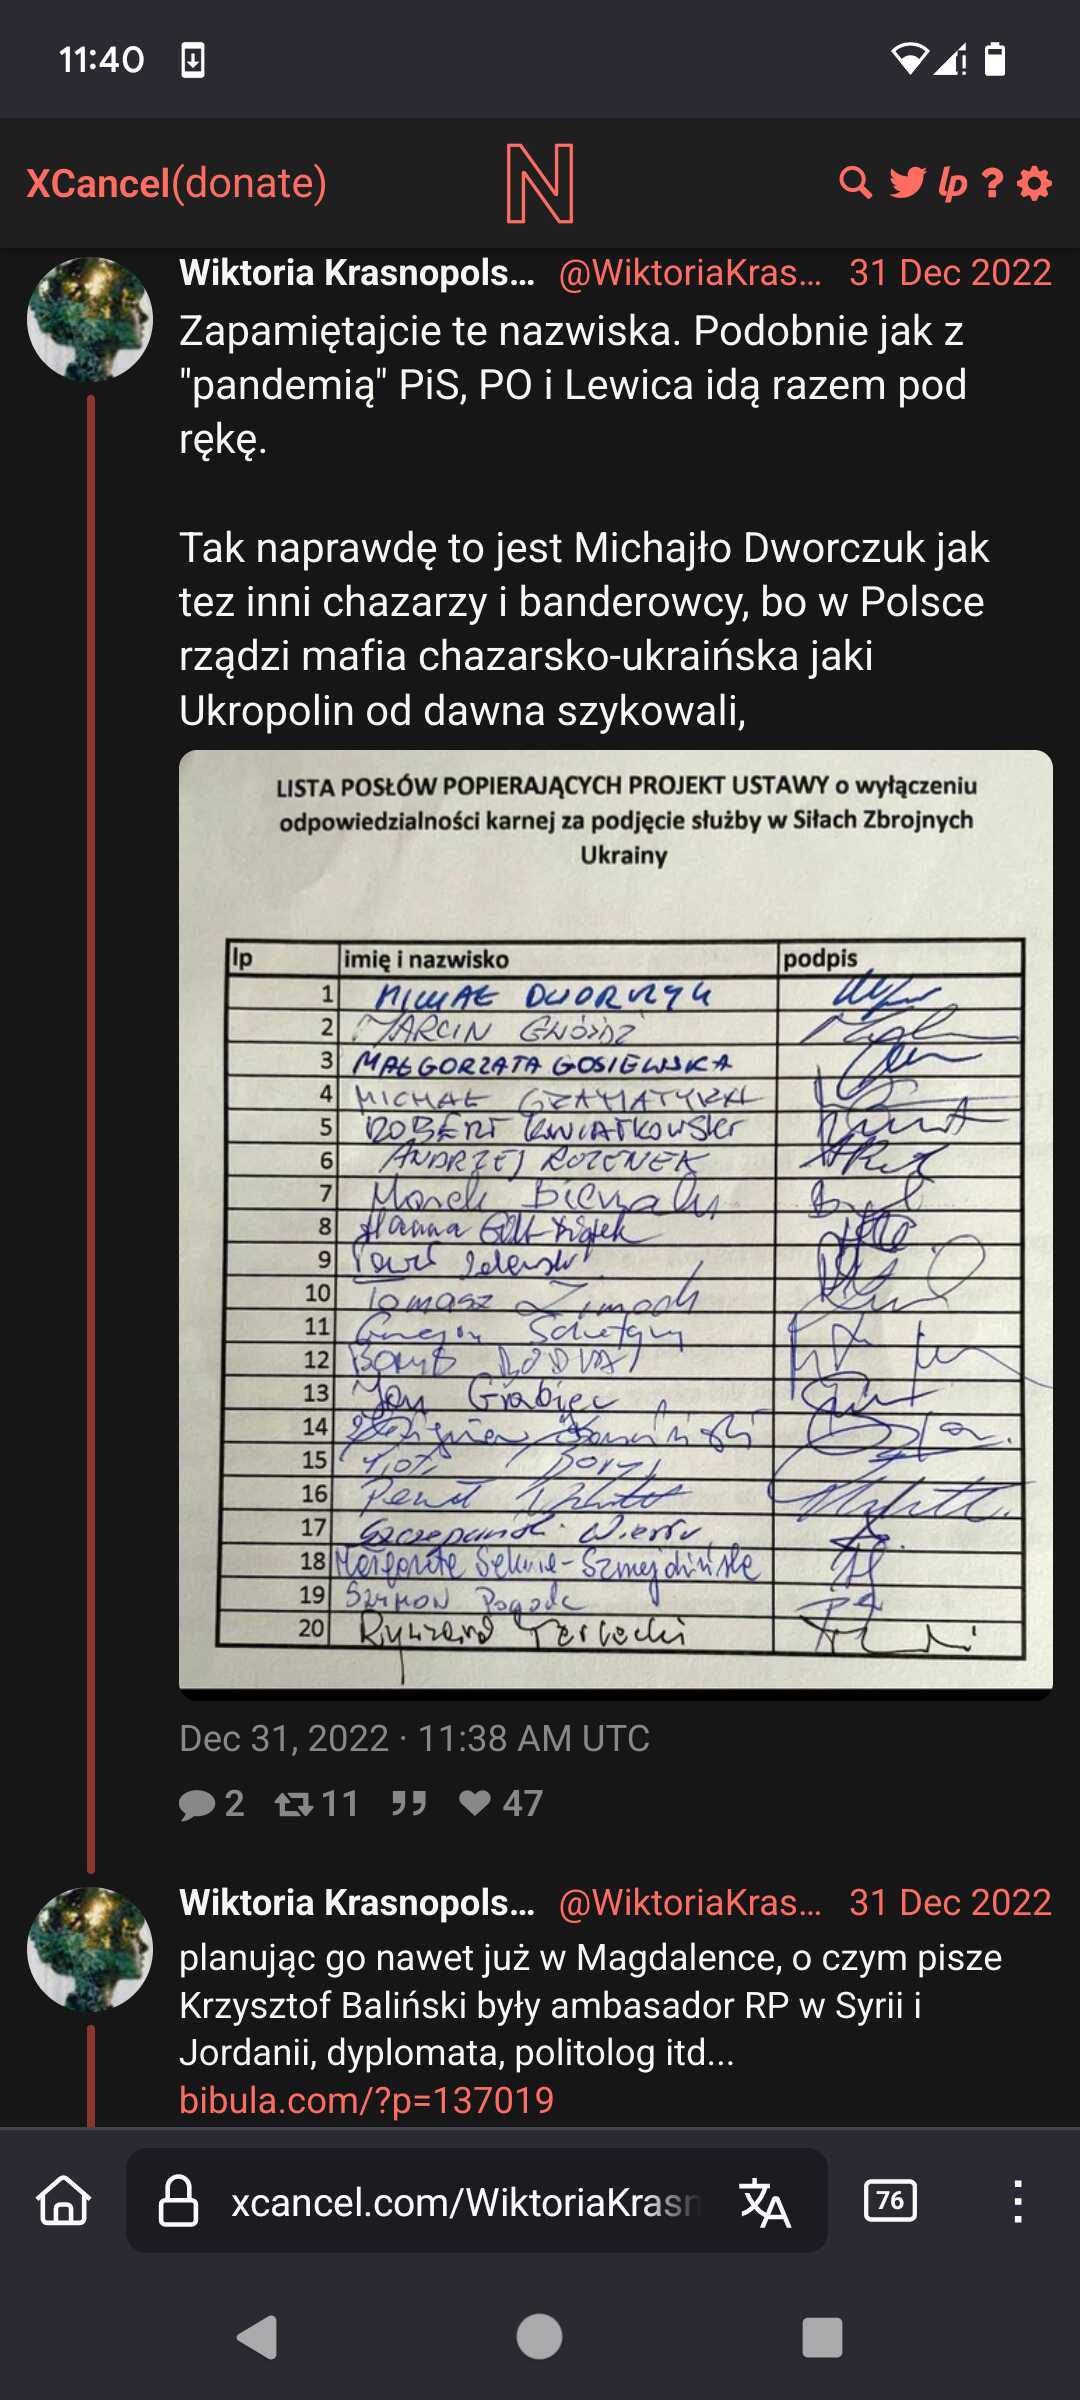 11:40
XCancel(donate) N lp ?
Wiktoria Krasnopols... @WiktoriaKras... 31 Dec 2022
Zapamiętajcie te nazwiska. Podobnie jak z
"pandemią" PiS, PO i Lewica idą razem pod
rękę.
Tak naprawdę to jest Michajło Dworczuk jak
tez inni chazarzy i banderowcy, bo w Polsce
rządzi mafia chazarsko-ukraińska jaki
Ukropolin od dawna szykowali,
LISTA POSŁÓW POPIERAJĄCYCH PROJEKT USTAWY o wyłączeniu
odpowiedzialności karnej za podjęcie służby w Siłach Zbrojnych
Ukrainy
lp imię i nazwisko podpis
1 MICHAŁ DWORCZYK
2 MARCIN GWÓŹDŹ
3 MAŁGORZATA GOSIEWSKA
4 MICHAŁ GRAMATYKA
5 ROBERT KWIATKOWSKI
6 ANDRZEJ ROZENEK
7 Marek Biernacki
8 Hanna Gill-Piątek
9 Paweł Zalewski
10 Tomasz Zimoch
11 Grzegorz Schetyna
12
13 Jan Grabiec
14
15
16 Paweł
17
18 Małgorzata Sekuła-Szmajdzińska
19 SZYMON Pogoda
20 Ryszard Terlecki
Dec 31, 2022 · 11:38 AM UTC
2 11 47
Wiktoria Krasnopols... @WiktoriaKras... 31 Dec 2022
planując go nawet już w Magdalence, o czym pisze
Krzysztof Baliński były ambasador RP w Syrii i
Jordanii, dyplomata, politolog itd...
bibula.com/?p=137019
xcancel.com/WiktoriaKrasn 76